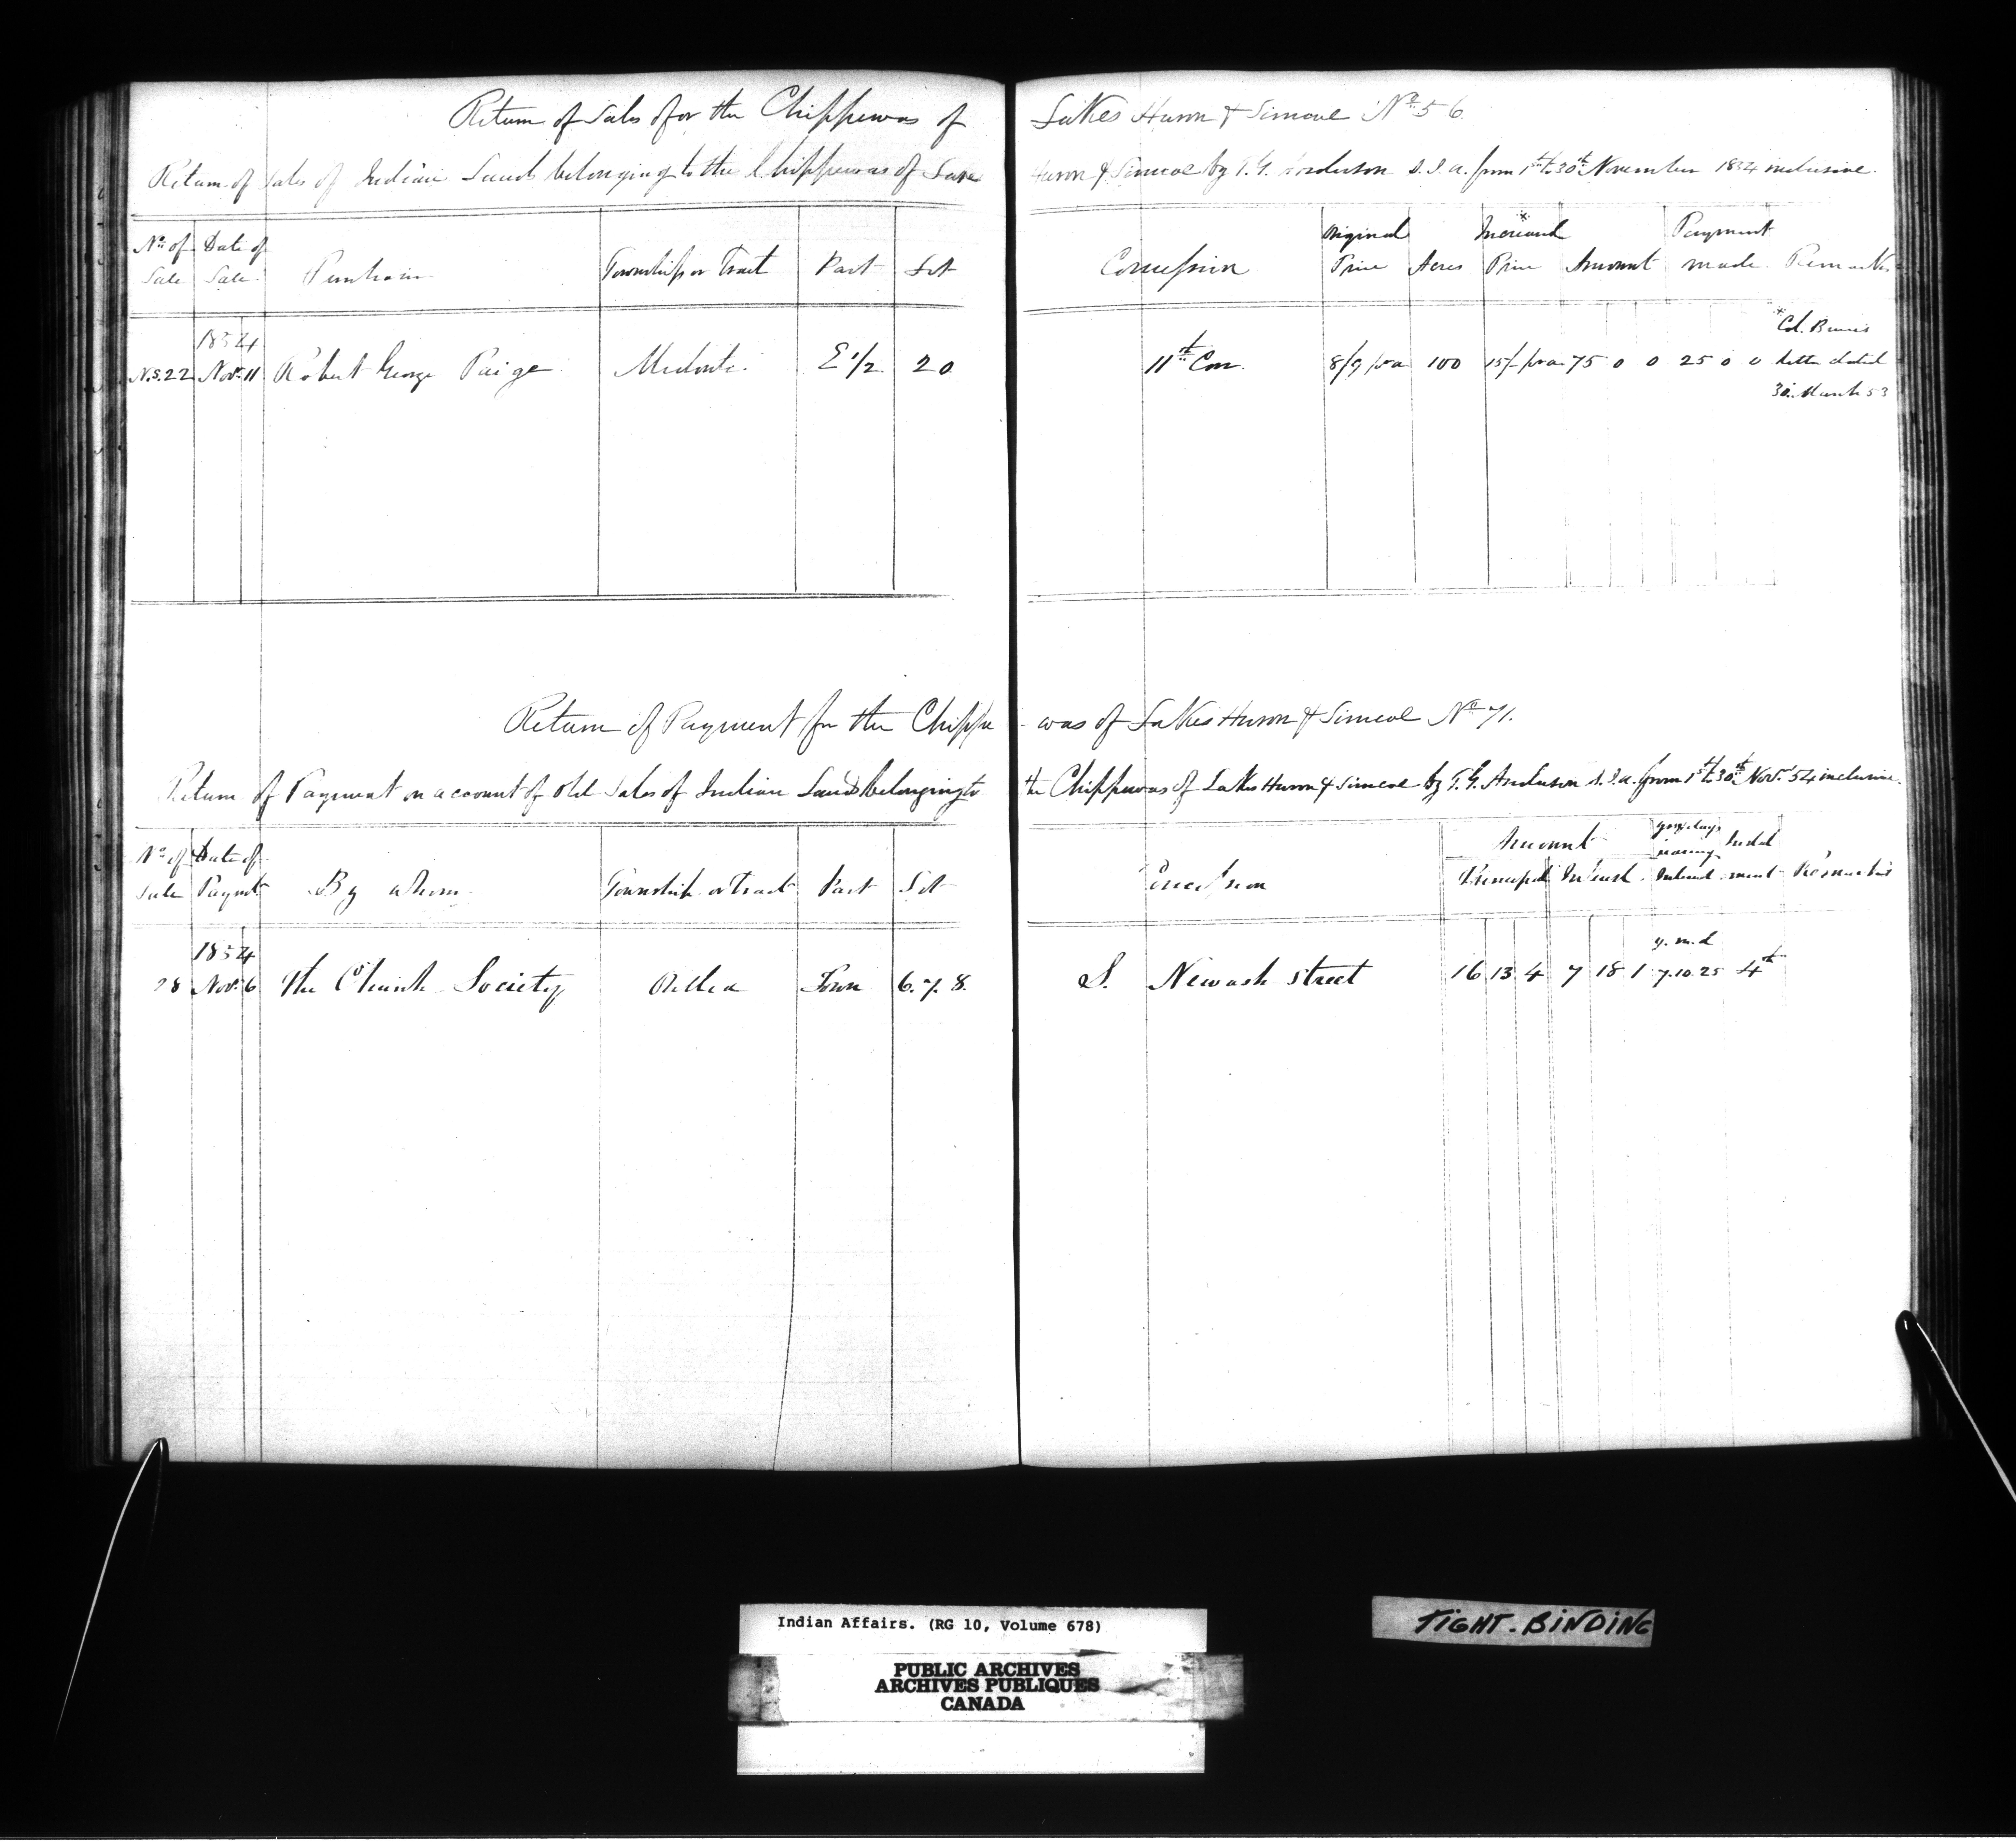 Return of Sales for the Chippewas of Lakes Huron & Simcoe No. 56
Return of Sales of Indian Lands belonging to the Chippewas of Lake Huron & Simcoe by T. G. Anderson S. I. A. from 1st to 30th November 1854 inclusive.
No. of Sale Date of Sale Township or Tract Part Lot Concession Original Price Acres Increased Price Amount Payment made Remarks
1854 * Col. Bruce's
N.S. 22 Novr. 11 Robert George Paige Medonte E 1/2 20 11th Con. 8/9 pr a 100 15/- pr a 75 0 0 25 0 0 letter dated
30. March 53
Return of Payment for the Chippewas of Lakes Huron & Simcoe No. 71.
Return of Payment on account of old Sales of Indian Lands belonging to the Chippewas of Lakes Huron & Simcoe by T. G. Anderson S. I. A. from 1st to 30th Novr. 54 inclusive.
No. of Sale Date of Paymt. By whom Township or Tract Part Lot Concession Amount Principal Interest Instalment Remarks
1854 y. m. d
28 Novr. 6 The Church Society Orillia Town 6. 7. 8. S. Newash Street 16 13 4 7 18 1 7. 10. 25 4th
Indian Affairs. (RG 10, Volume 678)
PUBLIC ARCHIVES
ARCHIVES PUBLIQUES
CANADA
TIGHT-BINDING